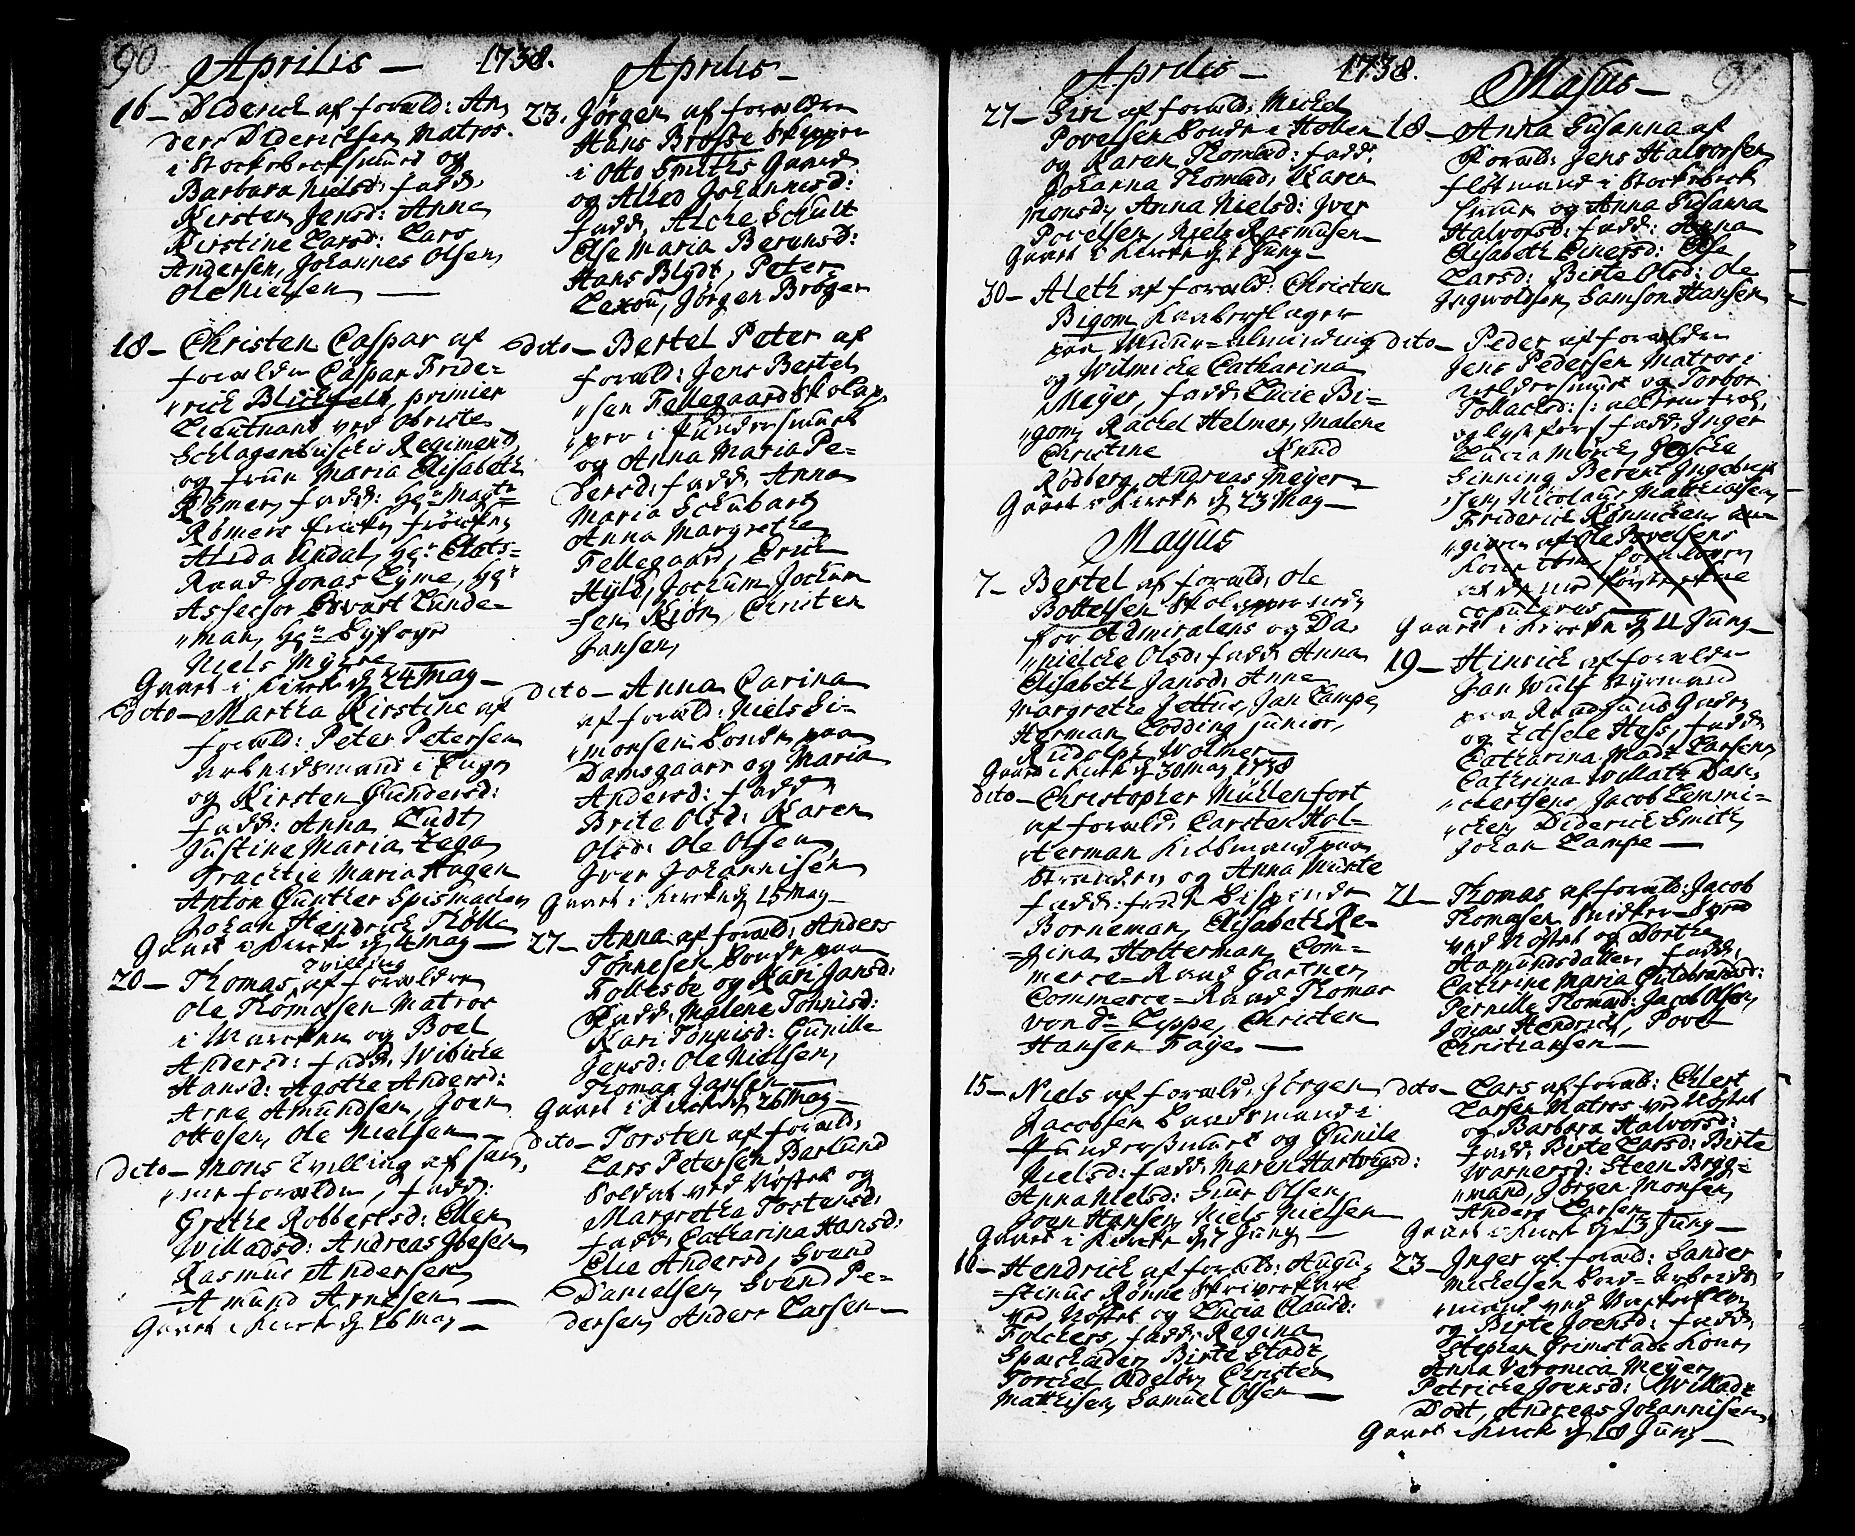 90 Aprilis — 1738.
16 — Diderich af foræld: An,
ders Diderichsen Matros
i Stockebecksmuus og
Barbara Nielsd: fadd,
Kirsten Jansd: Anne
Kirstine Larsd: Lars
Andersen, Johannes Olsen,
Ole Nielsen —
18 — Christen Caspar af
forælden Caspar Fride-
"rich Blichfelt, primier
Lieutnant ved Obriste
Schlagenbusches Regiment
og frue Maria Elisabeth
Römer, fadd: Hr Magt:
Römers
Alida Undal, Hr Clats-
Raad Jonas Lyme, Hr
Assessor Evart Lunde-
"man, Hr Byfogd
Niels Mÿhre
Gaaet i Kircke d 24 May —
Dito — Martha Kirstine af
foræld: Peter Petersen
Arbeidsmand i Enge,
og Kirsten Gundersd:
fadd: Anna Ludt,
Justine Maria Zega,
Trachtie Maria Hagen
Anton Günther Spismacher,
Johan Hendrich Thölle
Gaaet i Kircke d 4 May —
tvilling
20 — Thomas, af forældre
Ole Thomasen Matros
i Marcken og Boel
Andersd: fadd, Wibicke
Hansd: Agothe Andersd:
Arne Amundsen, Joen
Ottesen, Ole Nielsen —
Dito — Mons tvilling af sam,
"me forælden, fadd:
Grethe Robbertsd: Ellen
Willadsd: Andreas Ibesen
Rasmus Andersen,
Amund Arnesen —
Gaaet i Kircke d 26 May —
Aprilis —
23. Jørgen af forældre
Hans Brøsse Skipper
i Otto Smiths Gaard
og Alhed Johannisd:
fadd, Alche Schult
Else Maria Berensd:
Hans Blydt, Peter
Lexou, Jørgen Brøger
Dito — Bertel Peter af
foræld: Jens Bertel
"sen Fellegaard Skolap,
"per i Sundersmuus
og Anna Maria Pe-
dersd: fadd, Anna
Maria Schubart
Anna Margrethe
Fellegaard, Erich
Hyld, Jochum Jochum
-sen Kiön, Christen
Jansen,
Dito — Anna Carina
af foræld: Niels Si-
"monsen Bonde paa
Damsgaard og Maria
Andersd: fadd,
Brite Olsd: Karen
Olsd: Ole Olsen
Iver Johannisen
Gaaet i Kircke d 15 May —
27 — Anna af foræld, Anders
Tönnesen Bonde paa
Follesöe og Kari Jansd:
Fadd, Malene Tönnisd:
Kari Tönnisd: Gunille
Jensd: Ole Nielsen,
Thomas Jansen —
Gaaet i Kircke d 26 May —
Dito — Torsten af foræld,
Lars Petersen Barlund
Soldat ved Nöstet og
Margretha Torstensd,
fadd, Catharina Hansd:
Elie Andersd, Svend
Danielsen, Svend Pe-
dersen, Anders Larsen —
Aprilis — 1738.
27 — Siri af foræld: Michel
Povelsen Bonde i Holen
og Karen Thomæd: fadd,
Johanna Thomæd, Karen
Monsd, Anna Nielsd: Iver
Povelsen, Niels Rasmusen
Gaaet i Kircke d 1 Juny —
30 — Aleth af foræld: Christen
Bigom, Kaaberslager
paa Muur-Almindinge
og Wilmicke Catharina
Meÿer, fadd, Lucie Bi-
"gom, Rachel Helmer, Malene
Christine Knud
Rödberg, Andreas Meyer —
Gaaet i Kircke d 23 May —
Mayus
7 — Bertel af foræld, Ole
Bottelsen Skolapper ned,
for Admiralens og Da-
"nielche Olsd: fadd, Anna
Elisabeth Jansd: Anne
Margrethe Jettus, Jan Lampe,
Herman Lodding junior,
Rudolph Wolmer —
Gaaet i Kircke d 30 May 1738
Dito — Christopher Müllenfort
af foræld, Carsten Hol-
"terman Kiöbmand paa
Stranden, og Anna Müste
fadd: frue Bispinde
Borneman, Elisabeth Re-
-gina Holterman, Com-
merce-Raad Gartner,
Commerce-Raad Thomas
von dr Lippe, Christen
Hansen Faÿe —
15 — Niels af foræld, Jörgen
Jacobsen Baadsmand i
Sundersmuus og Gunile
Nielsd: fadd, Maren Hartvigsd:
Anna Nielsd: Siur Olsen,
Joen Hansen, Niels Nielsen
Gaaet i Kircke d 7 Juny —
16 — Hendrich af foræld: Augu,
-stinus Rönne Skriverkarl
ved Nöstet og Lucia Clausd:
Folckers, fadd, Regina
Sparckæder, Birte Stadt,
Torchel Adelör, Christen
Matthisen, Samuel Olsen —
Mayus — 91
18 — Anna Susanna af
foræld: Jens Halvorsen
flötmand i Stockebeck
smuus og Anna Susanna
Halvorsd: fadd: Anna
Elisabeth Einersd: Else
Larsd: Birte Olsd: Ole
Ingwoldsen, Samson Hansen
Dito — Peder af forælden
Jens Pedersen Matros i
og Torbor
Tollacksd:
fadd, Inger
Lucia Mörch, Gesche
Sinning Berent Ingebregt
"sen, Nicolaus Matthiasen
Friderich Könnicken,
af Ole Povelsens
copuleres
Gaaet i Kircke d 11 Juny —
19 — Hinrich af forælden
Jan Wulf Styrmand
og Zitsele Hess, fadd,
Catharina Madt Larsen,
Cathrina Willath Dan,
"ckertsens, Jacob Lemmi-
"cken, Diderich Smith
Johan Lampe —
21 — Thomas af foræld: Jacob
Thomasen Snidker-Svend
ved Nöstet og Dorthe
Aamundsdatter, fadd,
Cathrine Maria Hildebrandsd:
Pernille Thomæd: Jacob Olsen,
Jonas Hendrich, Povel
Christiansen —
Dito — Lars af foræld: Ehlert
Larsen Matros ved Nöstet
og Barbara Halvorsd:
fadd, Birte Larsd: Birte
Warnersd: Steen Brÿg-
"mand, Jörgen Monsen,
Anders Larsen —
Gaaet i Kircke d 13 Juny —
23 — Inger af foræld: Sander
Michelsen Bord-Arbeids
"mand ved
og Birte Joensd: fadd,
Stephen Grimstads Kone,
Anna Veronica Meÿer,
Petriche Joensd: Willads
Dodt, Andreas Johannisen,
Gaaet i Kircke d 18 Juny —